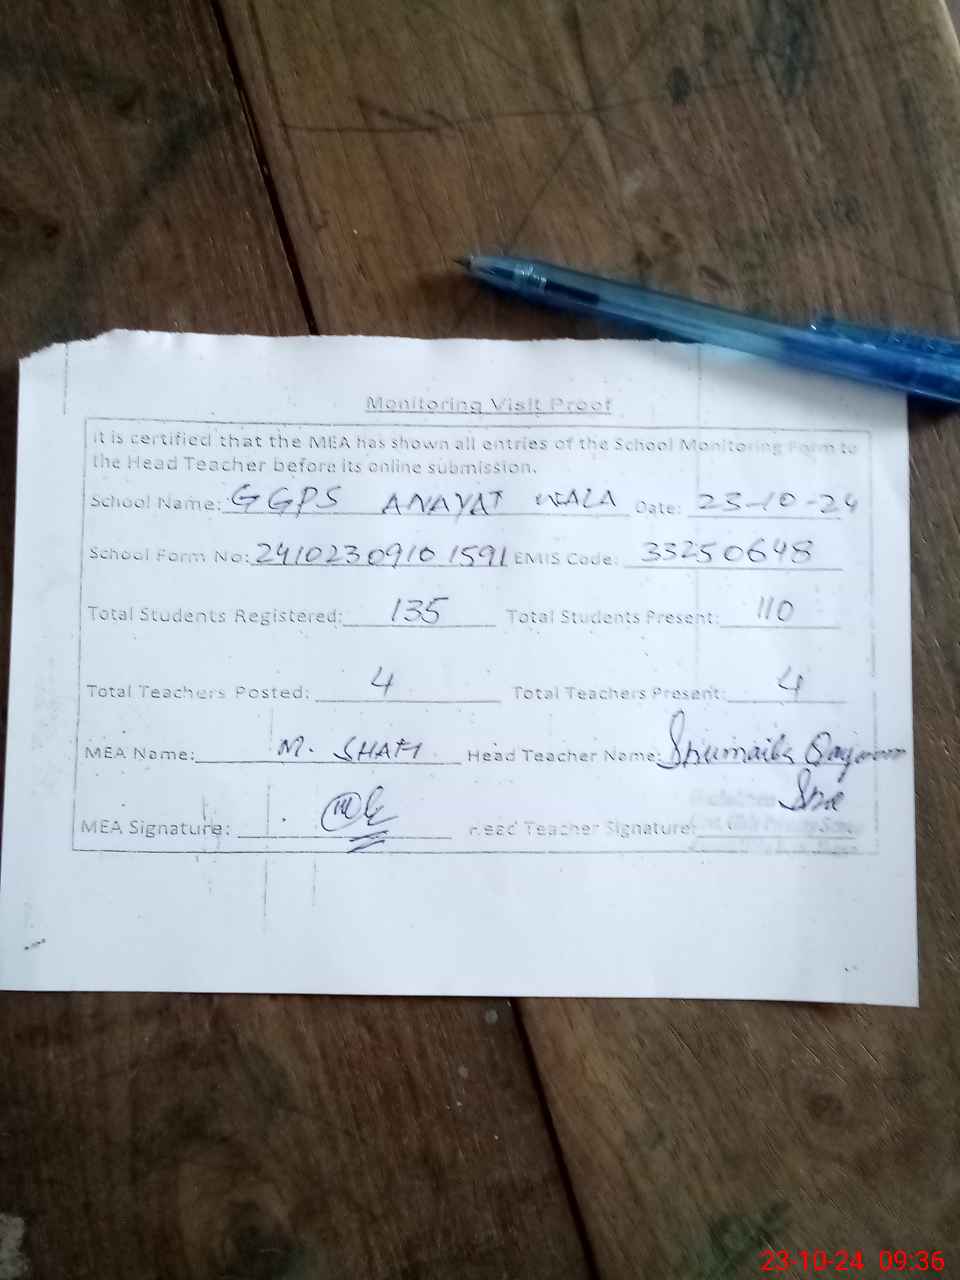 Monitoring Visit Proof
it is certified that the MEA has shown all entries of the School Monitoring Form to
the Head Teacher before its online submission.
School Name: GGPS ANAYAT WALA Date: 23-10-24
School Form No: 2410230910 1591 EMIS Code: 33250648
Total Students Registered: 135 Total Students Present: 110
Total Teachers Posted: 4 Total Teachers Present: 4
MEA Name: M. SHAFI Head Teacher Name: Shumaila
MEA Signature: Head Teacher Signature:
23-10-24 09:36